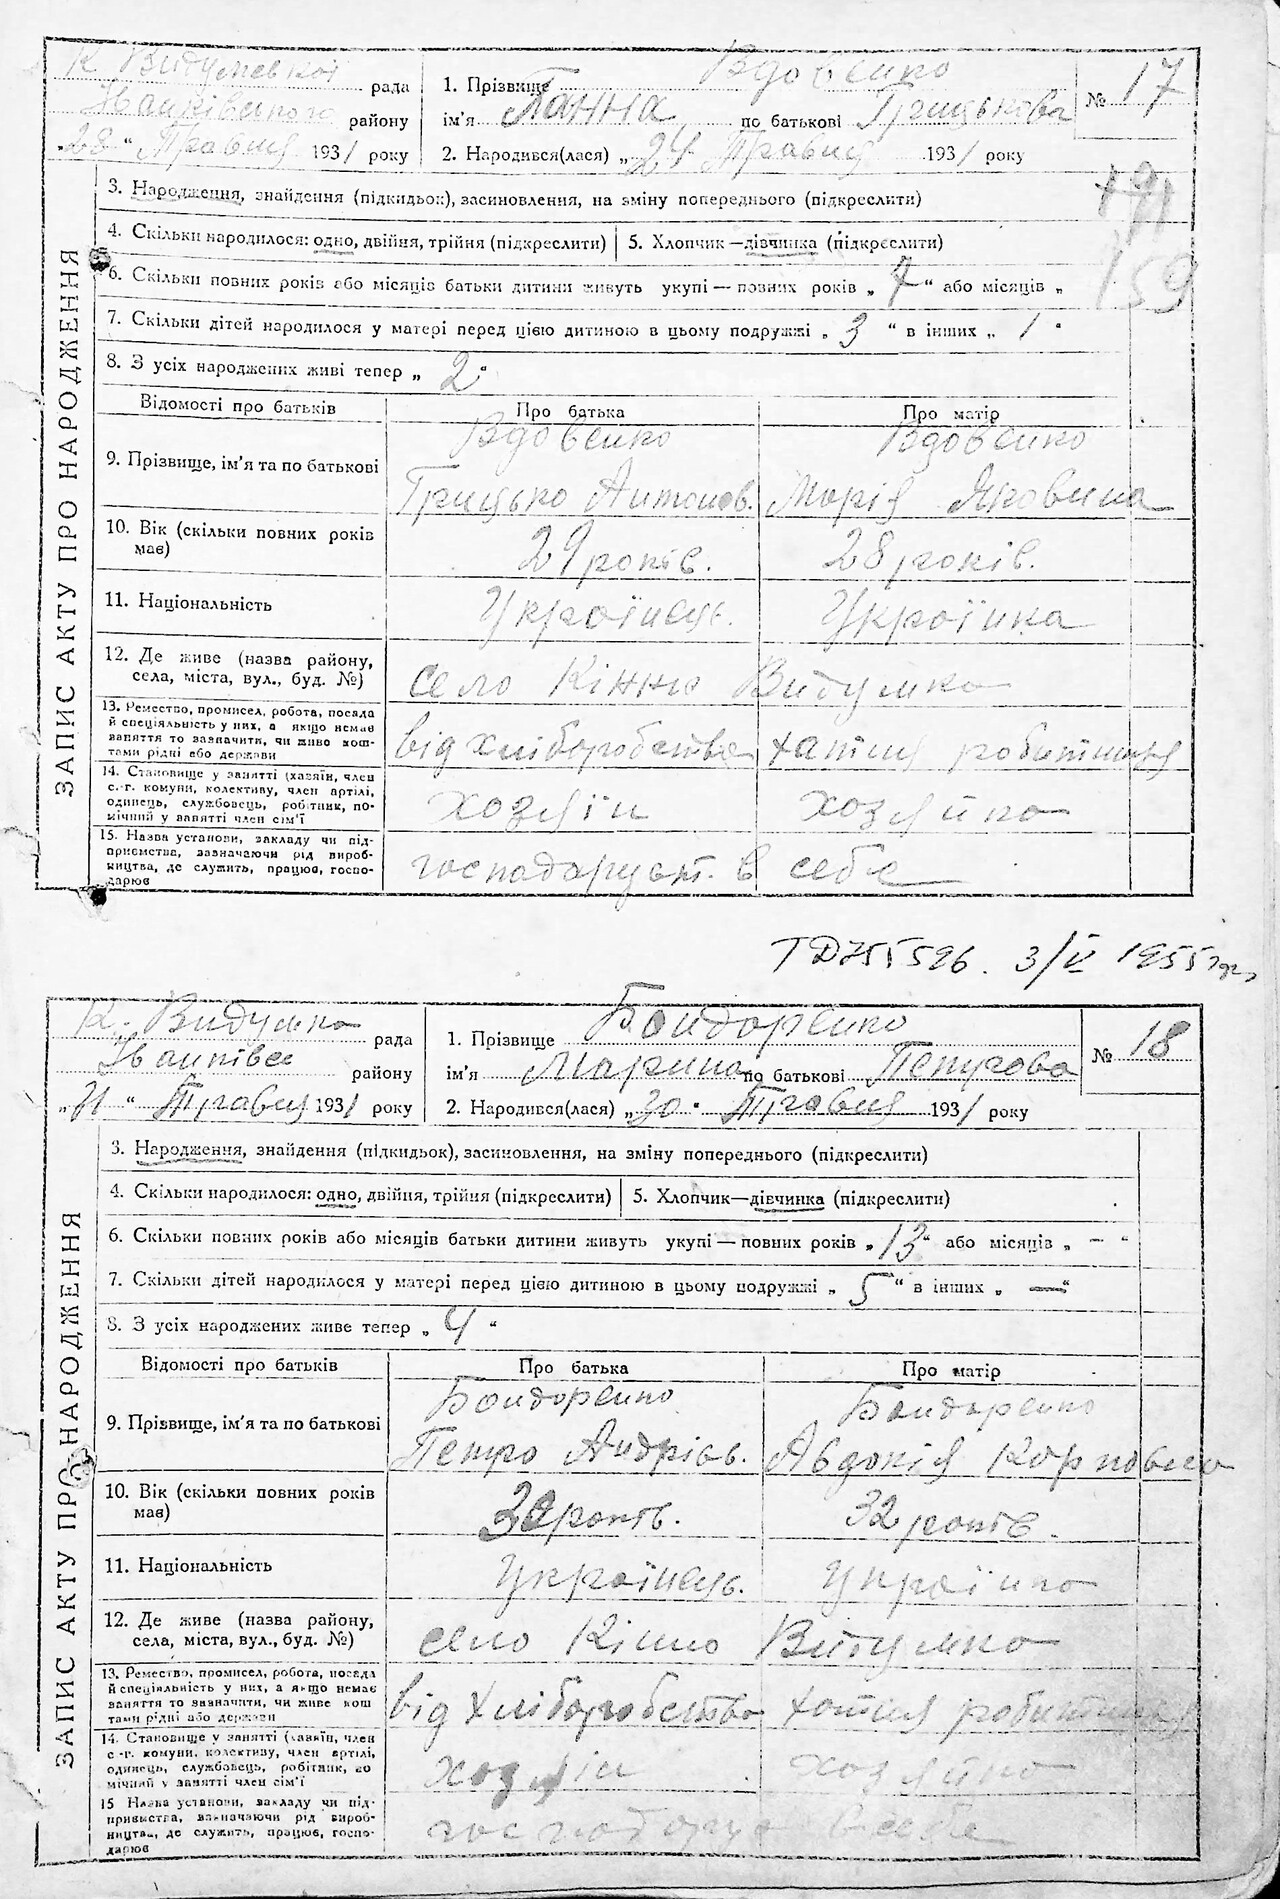 К Видумської рада
Іванківського району
„28“ Травня 1931 року
1. Прізвище Вдовенко
ім'я Ганна по батькові Грицькова
2. Народився(лася) „24 Травня 1931 року
№ 17
3. Народження, знайдення (підкидьок), засиновлення, на зміну попереднього (підкреслити)
4. Скільки народилося: одно, двійня, трійня (підкреслити)
5. Хлопчик—дівчинка (підкреслити)
6. Скільки повних років або місяців батьки дитини живуть укупі — повних років „7“ або місяців „
159
7. Скільки дітей народилося у матері перед цією дитиною в цьому подружжі „3“ в інших „1“
8. З усіх народжених живі тепер „2“
ЗАПИС АКТУ ПРО НАРОДЖЕННЯ
Відомості про батьків
Про батька
Про матір
9. Прізвище, ім'я та по батькові
Вдовенко
Грицько Антонов.
Вдовенко
Марія Яковина
10. Вік (скільки повних років має)
29 років.
28 років.
11. Національність
Українець.
Українка
12. Де живе (назва району,
села, міста, вул., буд. №)
село Кінна Видумка
13. Ремество, промисел, робота, посада
й спеціяльність у них, а якщо немає
заняття то зазначити, чи живе кош-
тами рідні або держави
від хліборобства
хатня робітниця
14. Становище у занятті (хазяїн, член
с.-г. комуни, колективу, член артілі,
одинець, службовець, робітник, по-
мічний у занятті член сім'ї
хозяїн
хозяйка
15. Назва установи, закладу чи під-
приємства, зазначаючи рід вироб-
ництва, де служить, працює, госпо-
дарює
господарюют. в себе
ТД 755596. 3/V 1955 р.
К. Видумка рада
Іванківсь району
„31“ Травня 1931 року
1. Прізвище Бондаренко
ім'я Марина по батькові Петрова
2. Народився(лася) „30“ Травня 1931 року
№ 18
3. Народження, знайдення (підкидьок), засиновлення, на зміну попереднього (підкреслити)
4. Скільки народилося: одно, двійня, трійня (підкреслити)
5. Хлопчик—дівчинка (підкреслити)
6. Скільки повних років або місяців батьки дитини живуть укупі — повних років „13“ або місяців „—“
7. Скільки дітей народилося у матері перед цією дитиною в цьому подружжі „5“ в інших „—“
8. З усіх народжених живе тепер „4“
ЗАПИС АКТУ ПРО НАРОДЖЕННЯ
Відомості про батьків
Про батька
Про матір
9. Прізвище, ім'я та по батькові
Бондаренко
Петро Андріів.
Бондаренко
Авдокія Карповна
10. Вік (скільки повних років має)
років.
32 років.
11. Національність
Українець.
Українка
12. Де живе (назва району,
села, міста, вул., буд. №)
село Кінна Видумка
13. Ремество, промисел, робота, посада
й спеціяльність у них, а якщо немає
заняття то зазначити, чи живе кош
тами рідні або держави
від хліборобства
хатня робітниця
14. Становище у занятті (хазяїн, член
с.-г. комуни, колективу, член артілі,
одинець, службовець, робітник, по
мічний у занятті член сім'ї
хозяїн
хозяйка
15 Назва установи, закладу чи під-
приємства, зазначаючи рід вироб-
ництва, де служить, працює, госпо-
дарює
господарює в себе